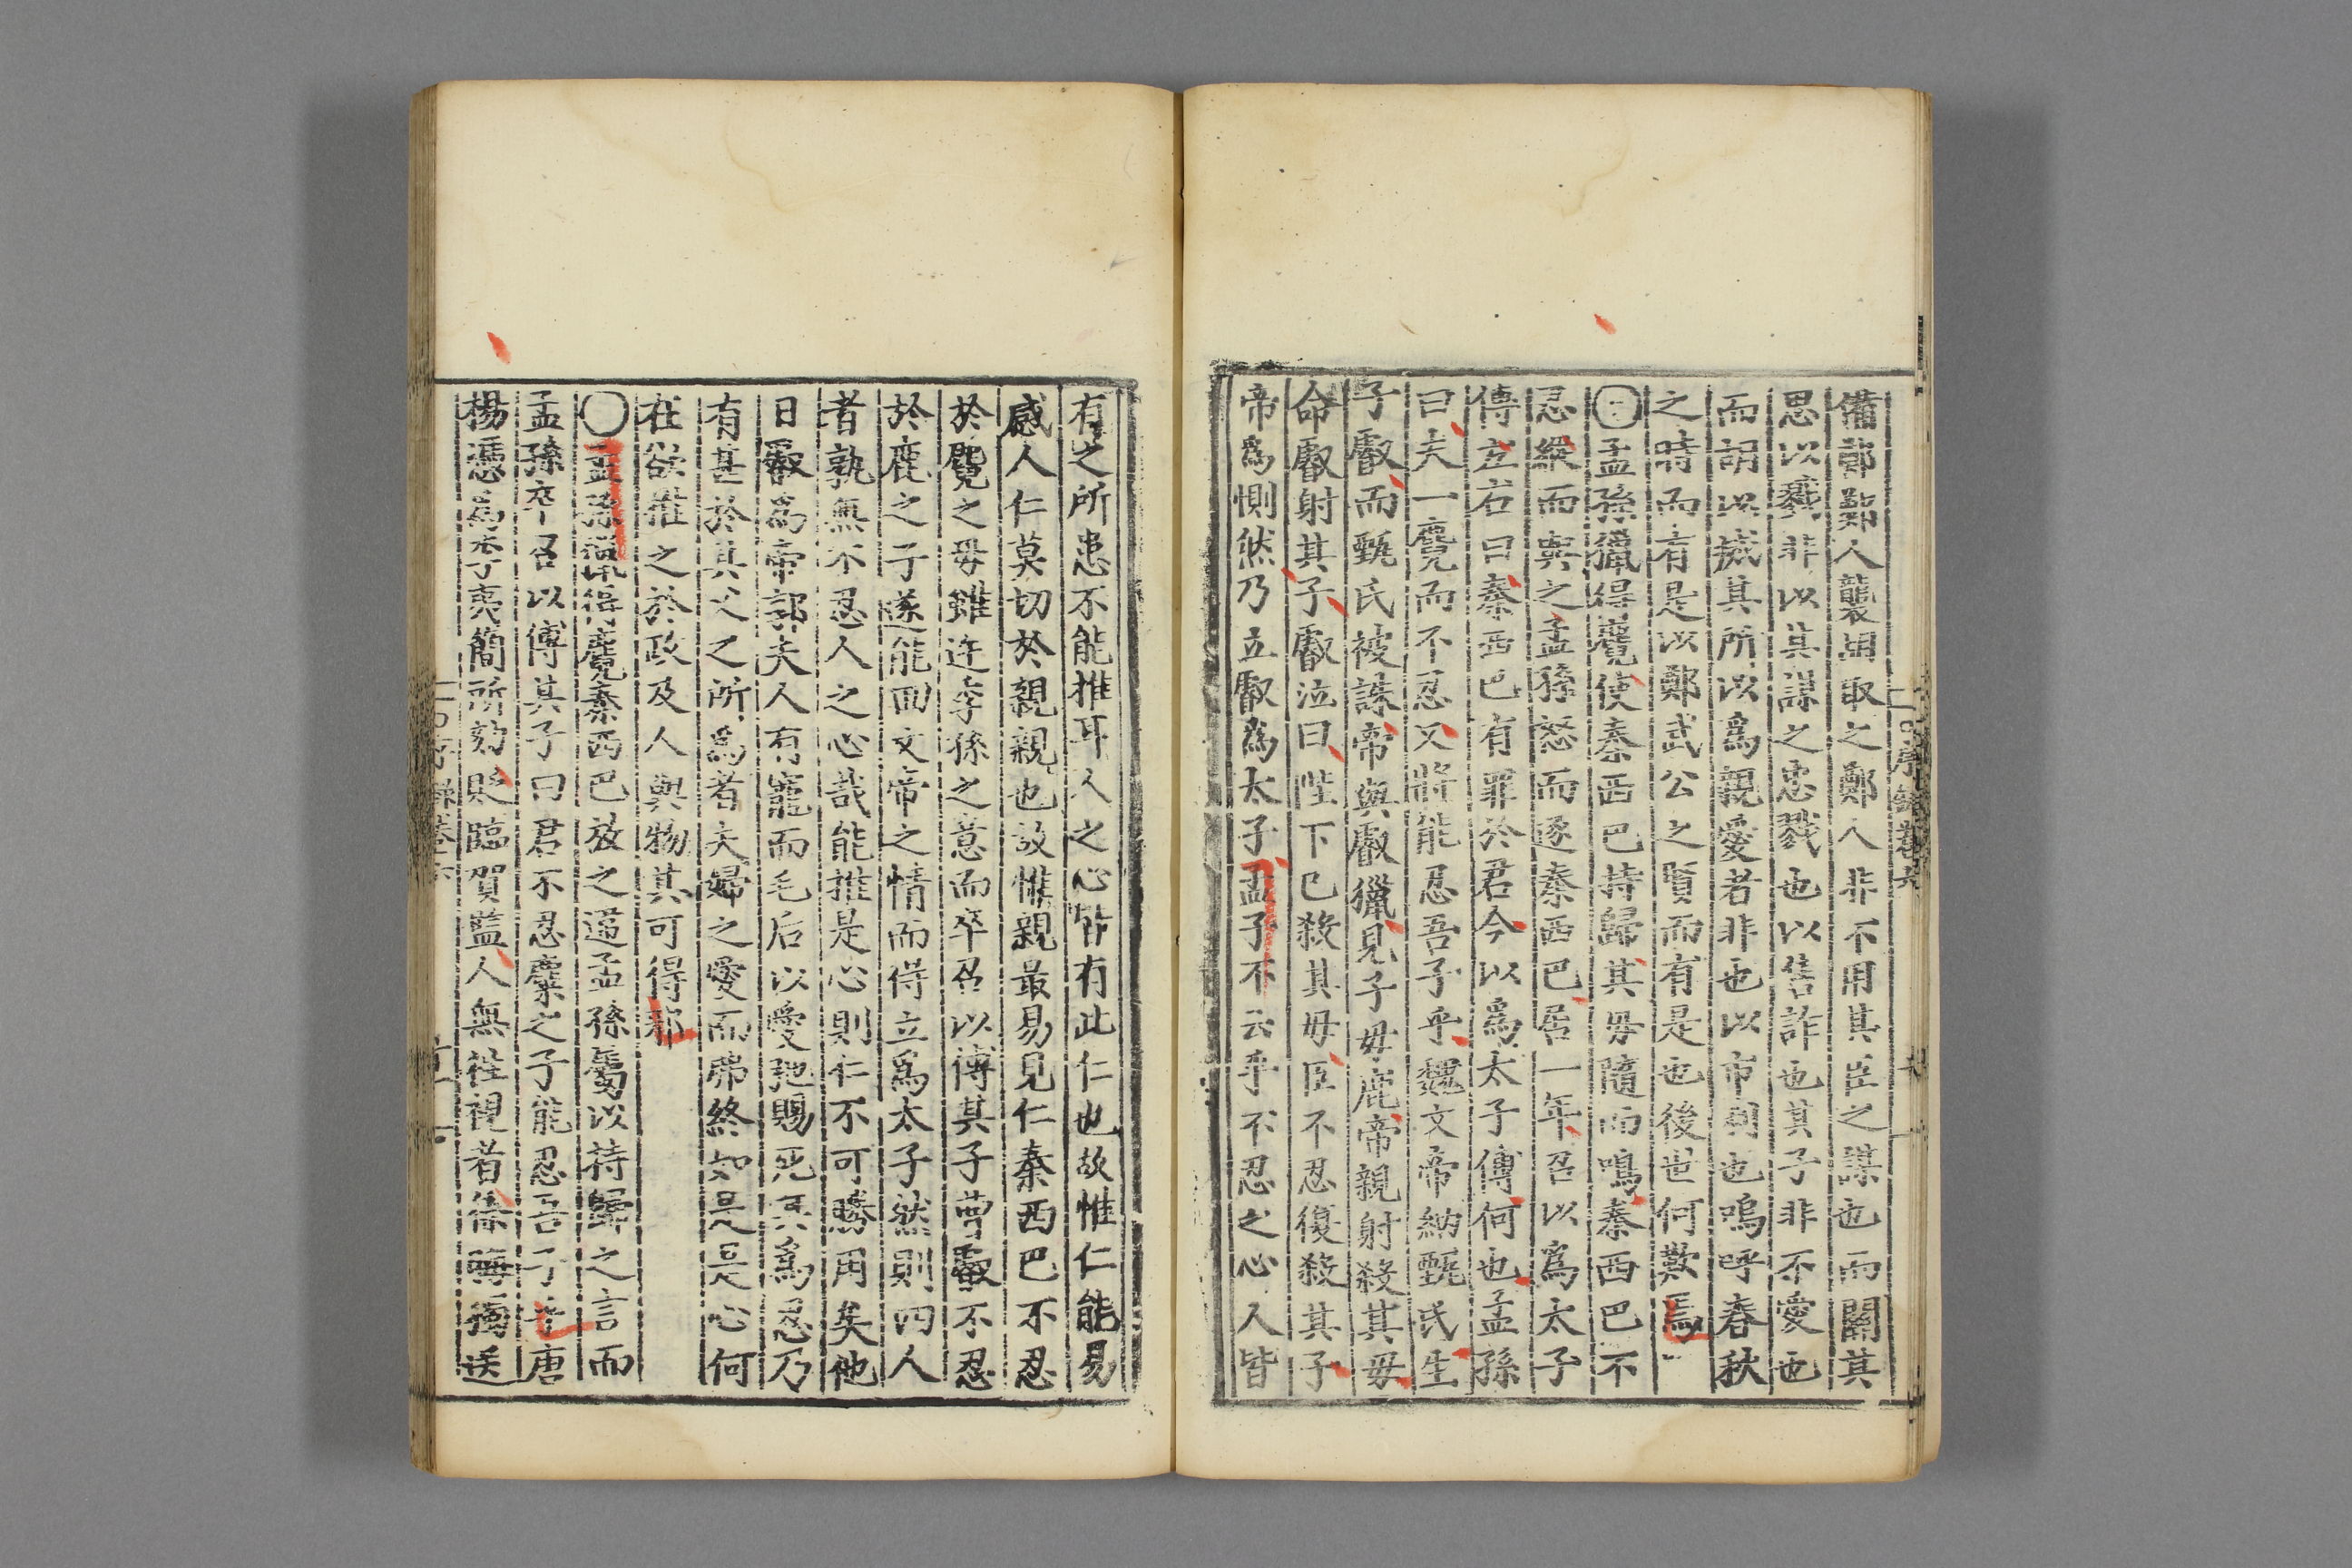 備鄭鄭人襲胡取之鄭人非不用其臣之謀也而關其
思以戮非以其謀之忠戮也以售詐也其子非不愛也
而胡以滅其所以爲親愛者非也以市國也嗚呼春秋
之時而有是以鄭武公之賢而有是也後世何歎焉
〇孟孫獵得麑使秦西巴持歸其母隨而鳴秦西巴不
忍縱而與之孟孫怒而逐秦西巴居一年召以爲太子
傅左右曰秦西巴有罪於君今以爲太子傅何也孟孫
曰夫一麑而不忍又將能忍吾子乎魏文帝納甄氏生
子叡而甄氏被誅帝與叡獵見子母鹿帝親射殺其母
命叡射其子叡泣曰陛下已殺其母臣不忍復殺其子
帝爲惻然乃立叡爲太子孟子不云乎不忍之心人皆
有之所患不能推耳人之心皆有此仁也故惟仁能易
感人仁莫切於親親也故惟親最易見仁秦西巴不忍
於麑之母雖迕孟孫之意而卒召以傅其子曹叡不忍
於鹿之子遂能回文帝之情而得立爲太子然則四人
者孰無不忍人之心哉能推是心則仁不可勝用矣他
日叡爲帝郭夫人有寵而毛后以愛弛賜死其爲忍乃
有甚於其父之所爲者夫婦之愛而弗終如是是心何
在欲推之於政及人與物其可得耶
〇孟孫獵得麑秦西巴放之逕孟孫屬以持歸之言而
孟孫卒召以傅其子曰君不忍麋之子能忍吾子乎唐
楊憑爲李夷簡所劾貶臨賀藍人無往視者徐晦獨送